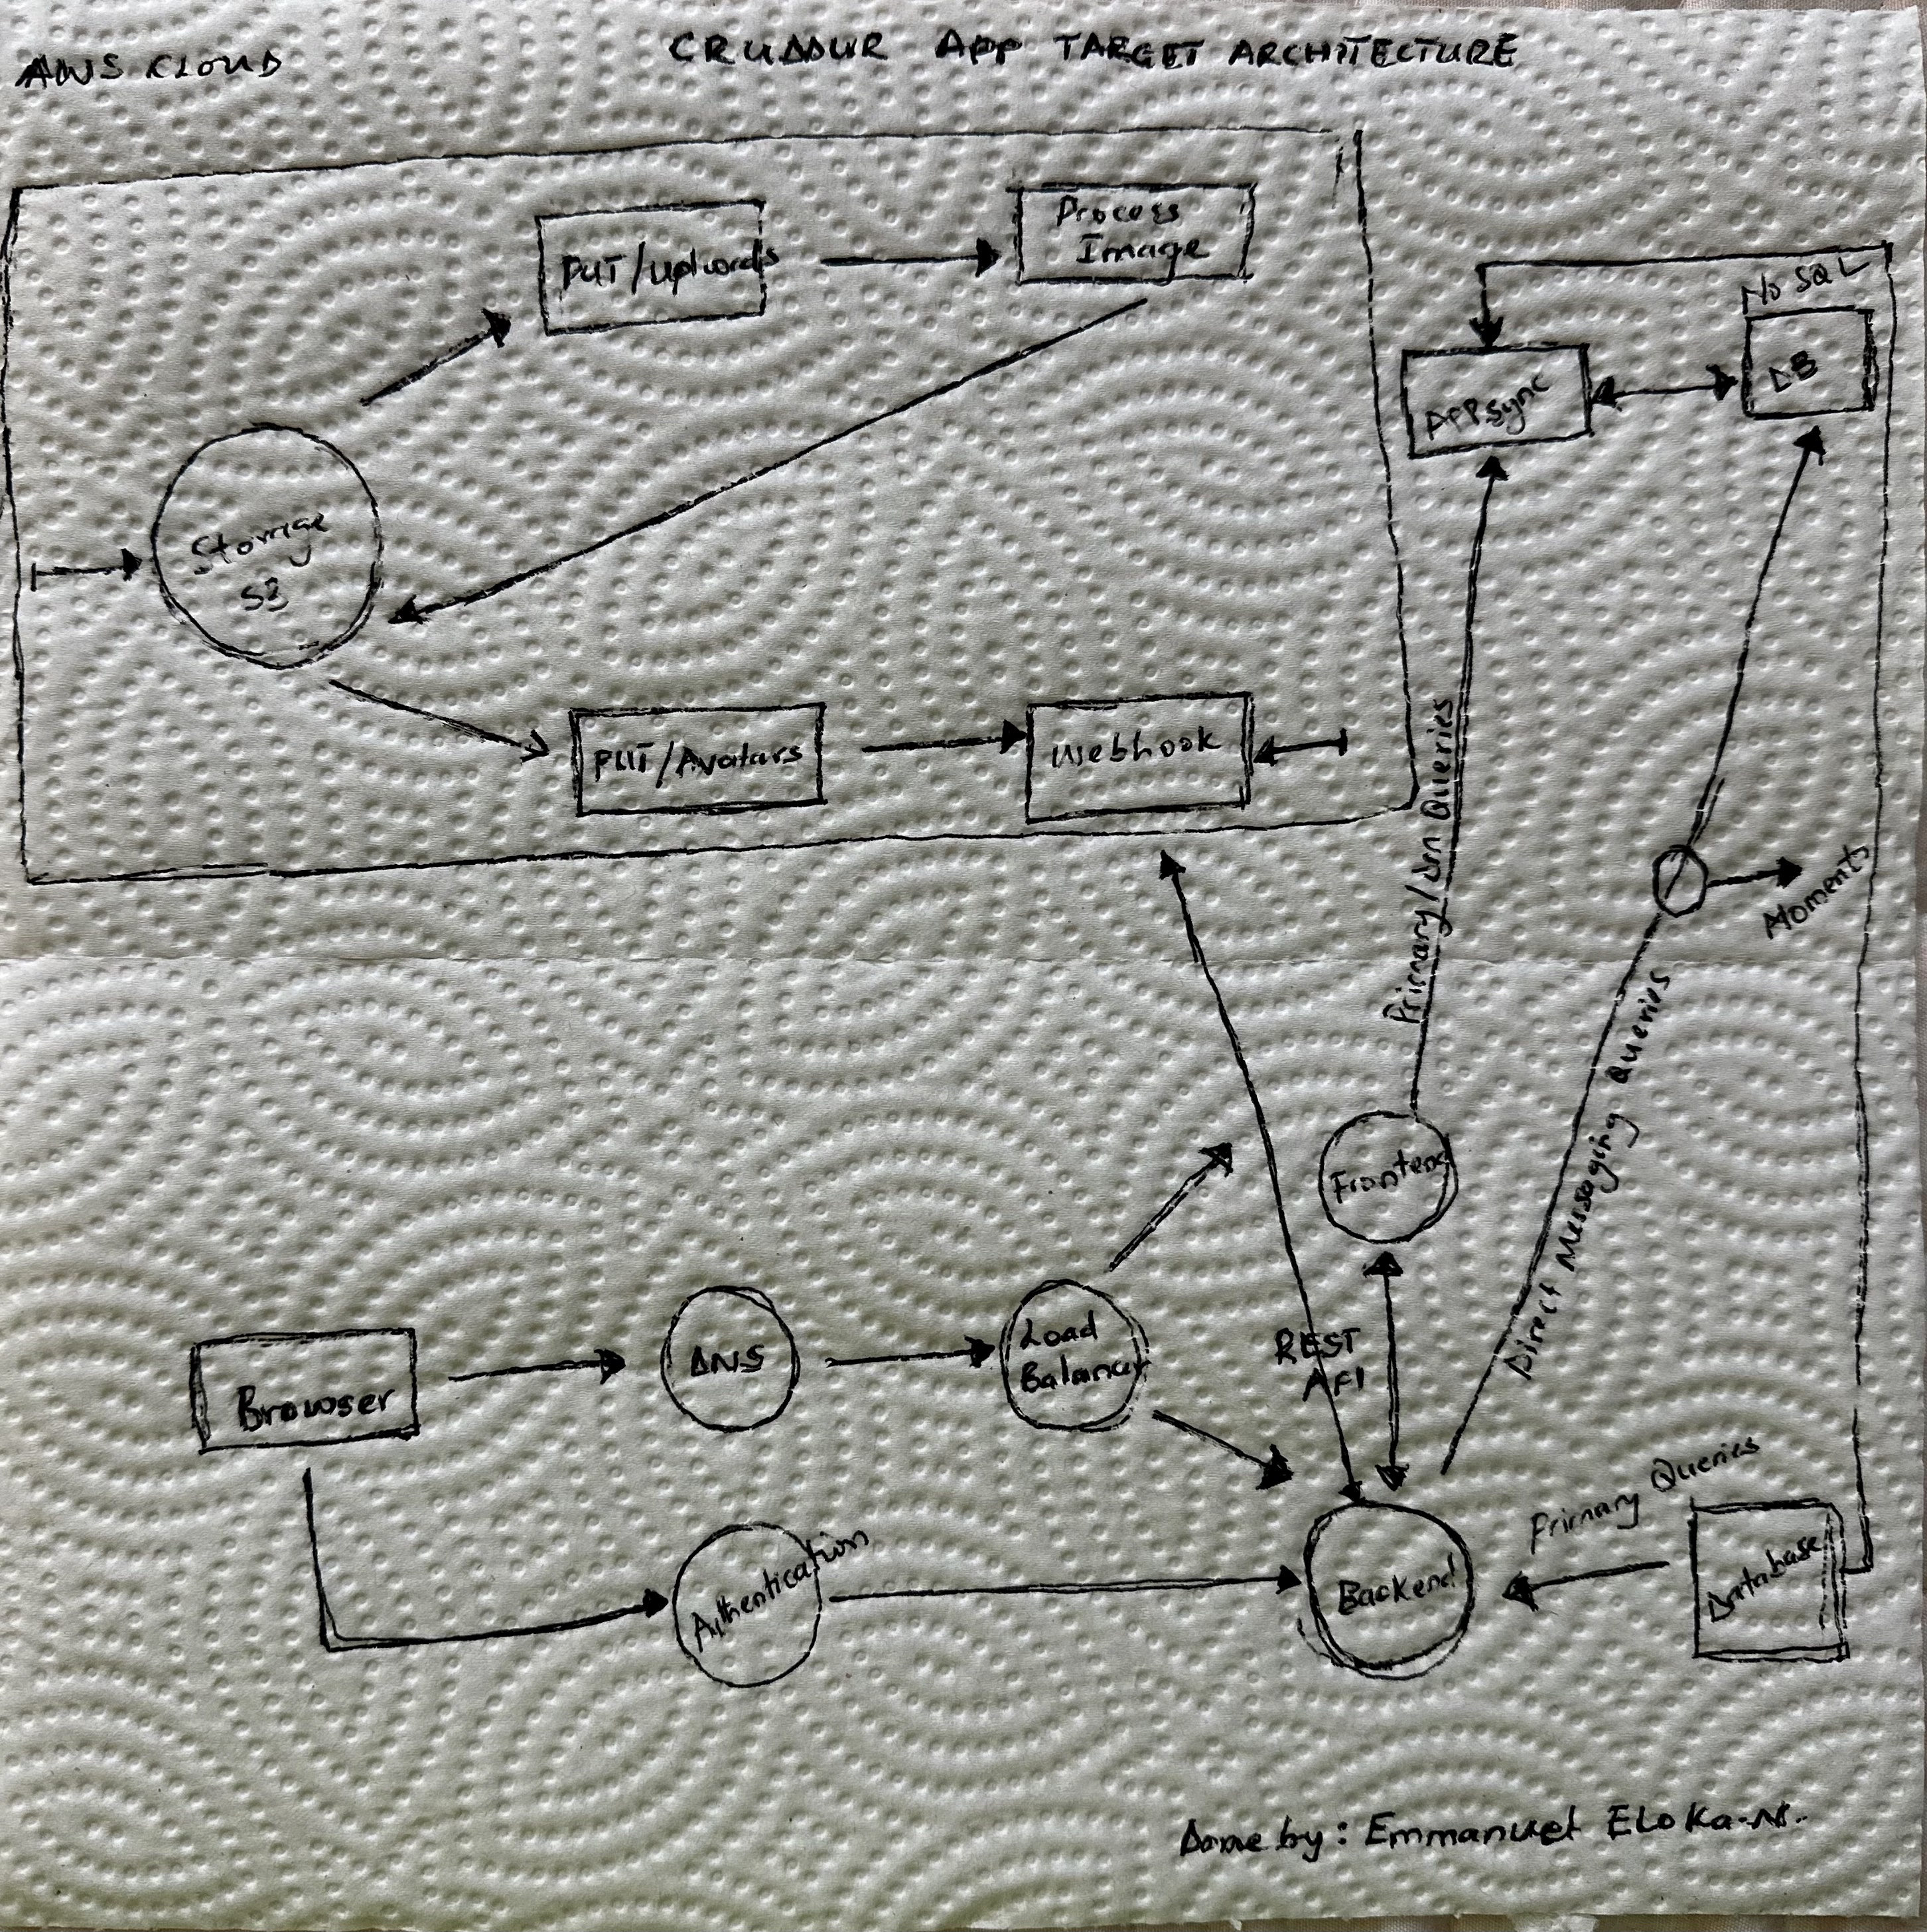 AWS CLOUD
CRUDDUR APP TARGET ARCHITECTURE
PUT/uploads
Process
Image
No SQL
DB
APPsync
Storage
S3
PUT/Avatars
Webhook
Primary/ Queries
Moments
Direct Messaging Queries
Frontend
REST
API
Browser
DNS
Load
Balancer
Authentication
Backend
Primary Queries
Database
Done by: Emmanuel Eloka-N.